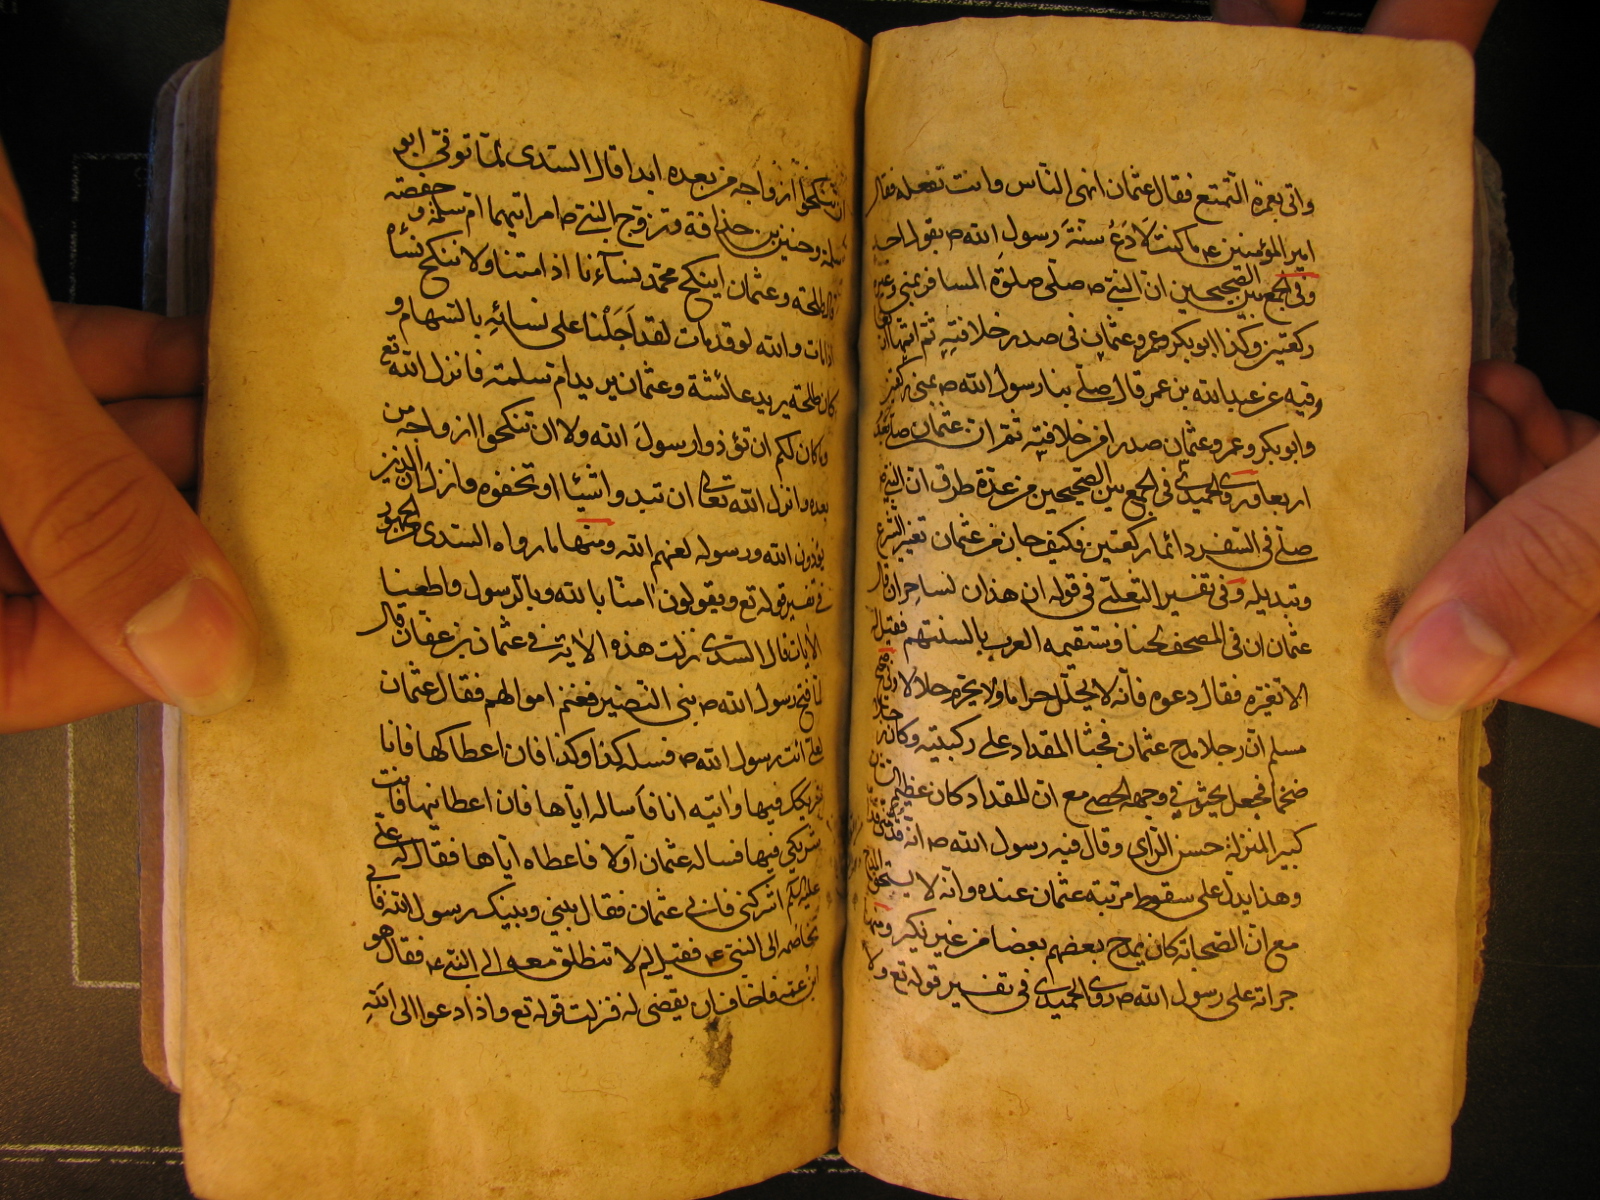 واتى بعمرة التمتع فقال عثمان انهى الناس وانت تفعله فقال
امير المؤمنين ع ما كنت لادع سنة رسول الله ص بقول احد
وفى الجمع بين الصحيحين ان النبى ص صلى صلوة المسافر بمنى وغيره
ركعتين وكذا ابوبكر وعمر وعثمان فى صدر خلافته ثم اتمها
وفيه عن عبد الله بن عمر قال صلى بنا رسول الله ص بمنى ركعتين
وابو بكر وعمر وعثمان صدرا من خلافته ثم ان عثمان صلى بعد
اربعا وروى الحميدى فى الجمع بين الصحيحين من عدة طرق ان النبى ص
صلى فى السفر دائما ركعتين فكيف جاز من عثمان تغير الشرع
وتبديله وفى تفسير الثعلبى فى قوله ان هذان لساحران قال
عثمان ان فى المصحف لحنا وستقيمه العرب بالسنتهم فقيل له
الا تغيره فقال دعوه فانه لا يحلل حراما ولا يحرم حلالا وفى صحيح
مسلم ان رجلا مدح عثمان فجثا المقداد على ركبتيه وكان رجلا
ضخما فجعل يحثو فى وجهه الحصى مع ان المقداد كان عظيم الشان
كبير المنزلة حسن الراى وقال فيه رسول الله ص انه
وهذا يدل على سقوط مرتبة عثمان عنده وانه لا يستحق المدح
مع ان الصحابة كان يمدح بعضهم بعضا من غير نكير ومنها
جراته على رسول الله ص روى الحميدى فى تفسير قوله تع ولا
ان تنكحوا ازواجه من بعده ابدا قال السدى لما توفى ابو
سلمة وحنين بن حذافة وتزوج النبى ص امراتيهما ام سلمة و حفصة
قال طلحة وعثمان اينكح محمد نساءنا اذا متنا ولا ننكح نساءه
اذا مات والله لو قد مات لقد اجلنا على نسائه بالسهام و
كان طلحة يريد عائشة وعثمان يريد ام سلمة فانزل الله تع
وما كان لكم ان تؤذوا رسول الله ولا ان تنكحوا ازواجه من
بعده وانزل الله تعالى ان تبدوا شيئا او تخفوه وانزل ان الذين
يؤذون الله ورسوله لعنهم الله ومنها ما رواه السدى
فى تفسير قوله تع ويقولون امنا بالله وبالرسول واطعنا
الايات قال السدى نزلت هذه الاية فى عثمان بن عفان قال
لما فتح رسول الله ص بنى النضير فغنم اموالهم فقال عثمان
لعلى ائت رسول الله ص فسله كذا وكذا فان اعطاكها فانا
شريكك فيها واتيه انا فاساله اياها فان اعطانيها فانت
شريكى فيها فساله عثمان اولا فاعطاه اياها فقال له على
عليه السلم اشركنى فابى عثمان فقال بينى وبينك رسول الله فابى
تخاصمه الى النبى ع فقيل لم لا تنطلق معه الى النبى ع فقال هو
ابن عمه فاخاف ان يقضى له فنزلت قوله تع واذا دعوا الى الله